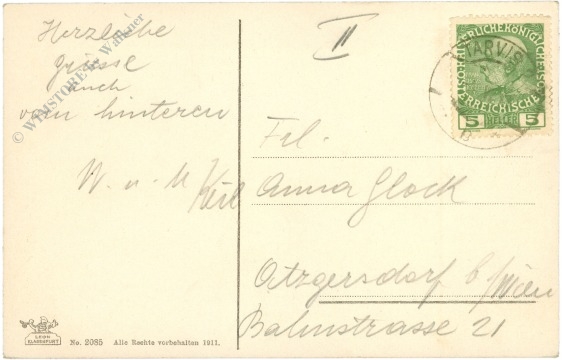 Herzliche
Grüsse
auch
vom hinteren
W. u. M Keil
© WIMSTORE W. Walkner
II
TARVIS
KAISERLICHE KÖNIGLICHE ÖSTERREICHISCHE
5 HELLER 5
Frl.
Anna Glock
Atzgersdorf b/Wien
Bahnstrasse 21
LEON
KLAGENFURT
No. 2085 Alle Rechte vorbehalten 1911.